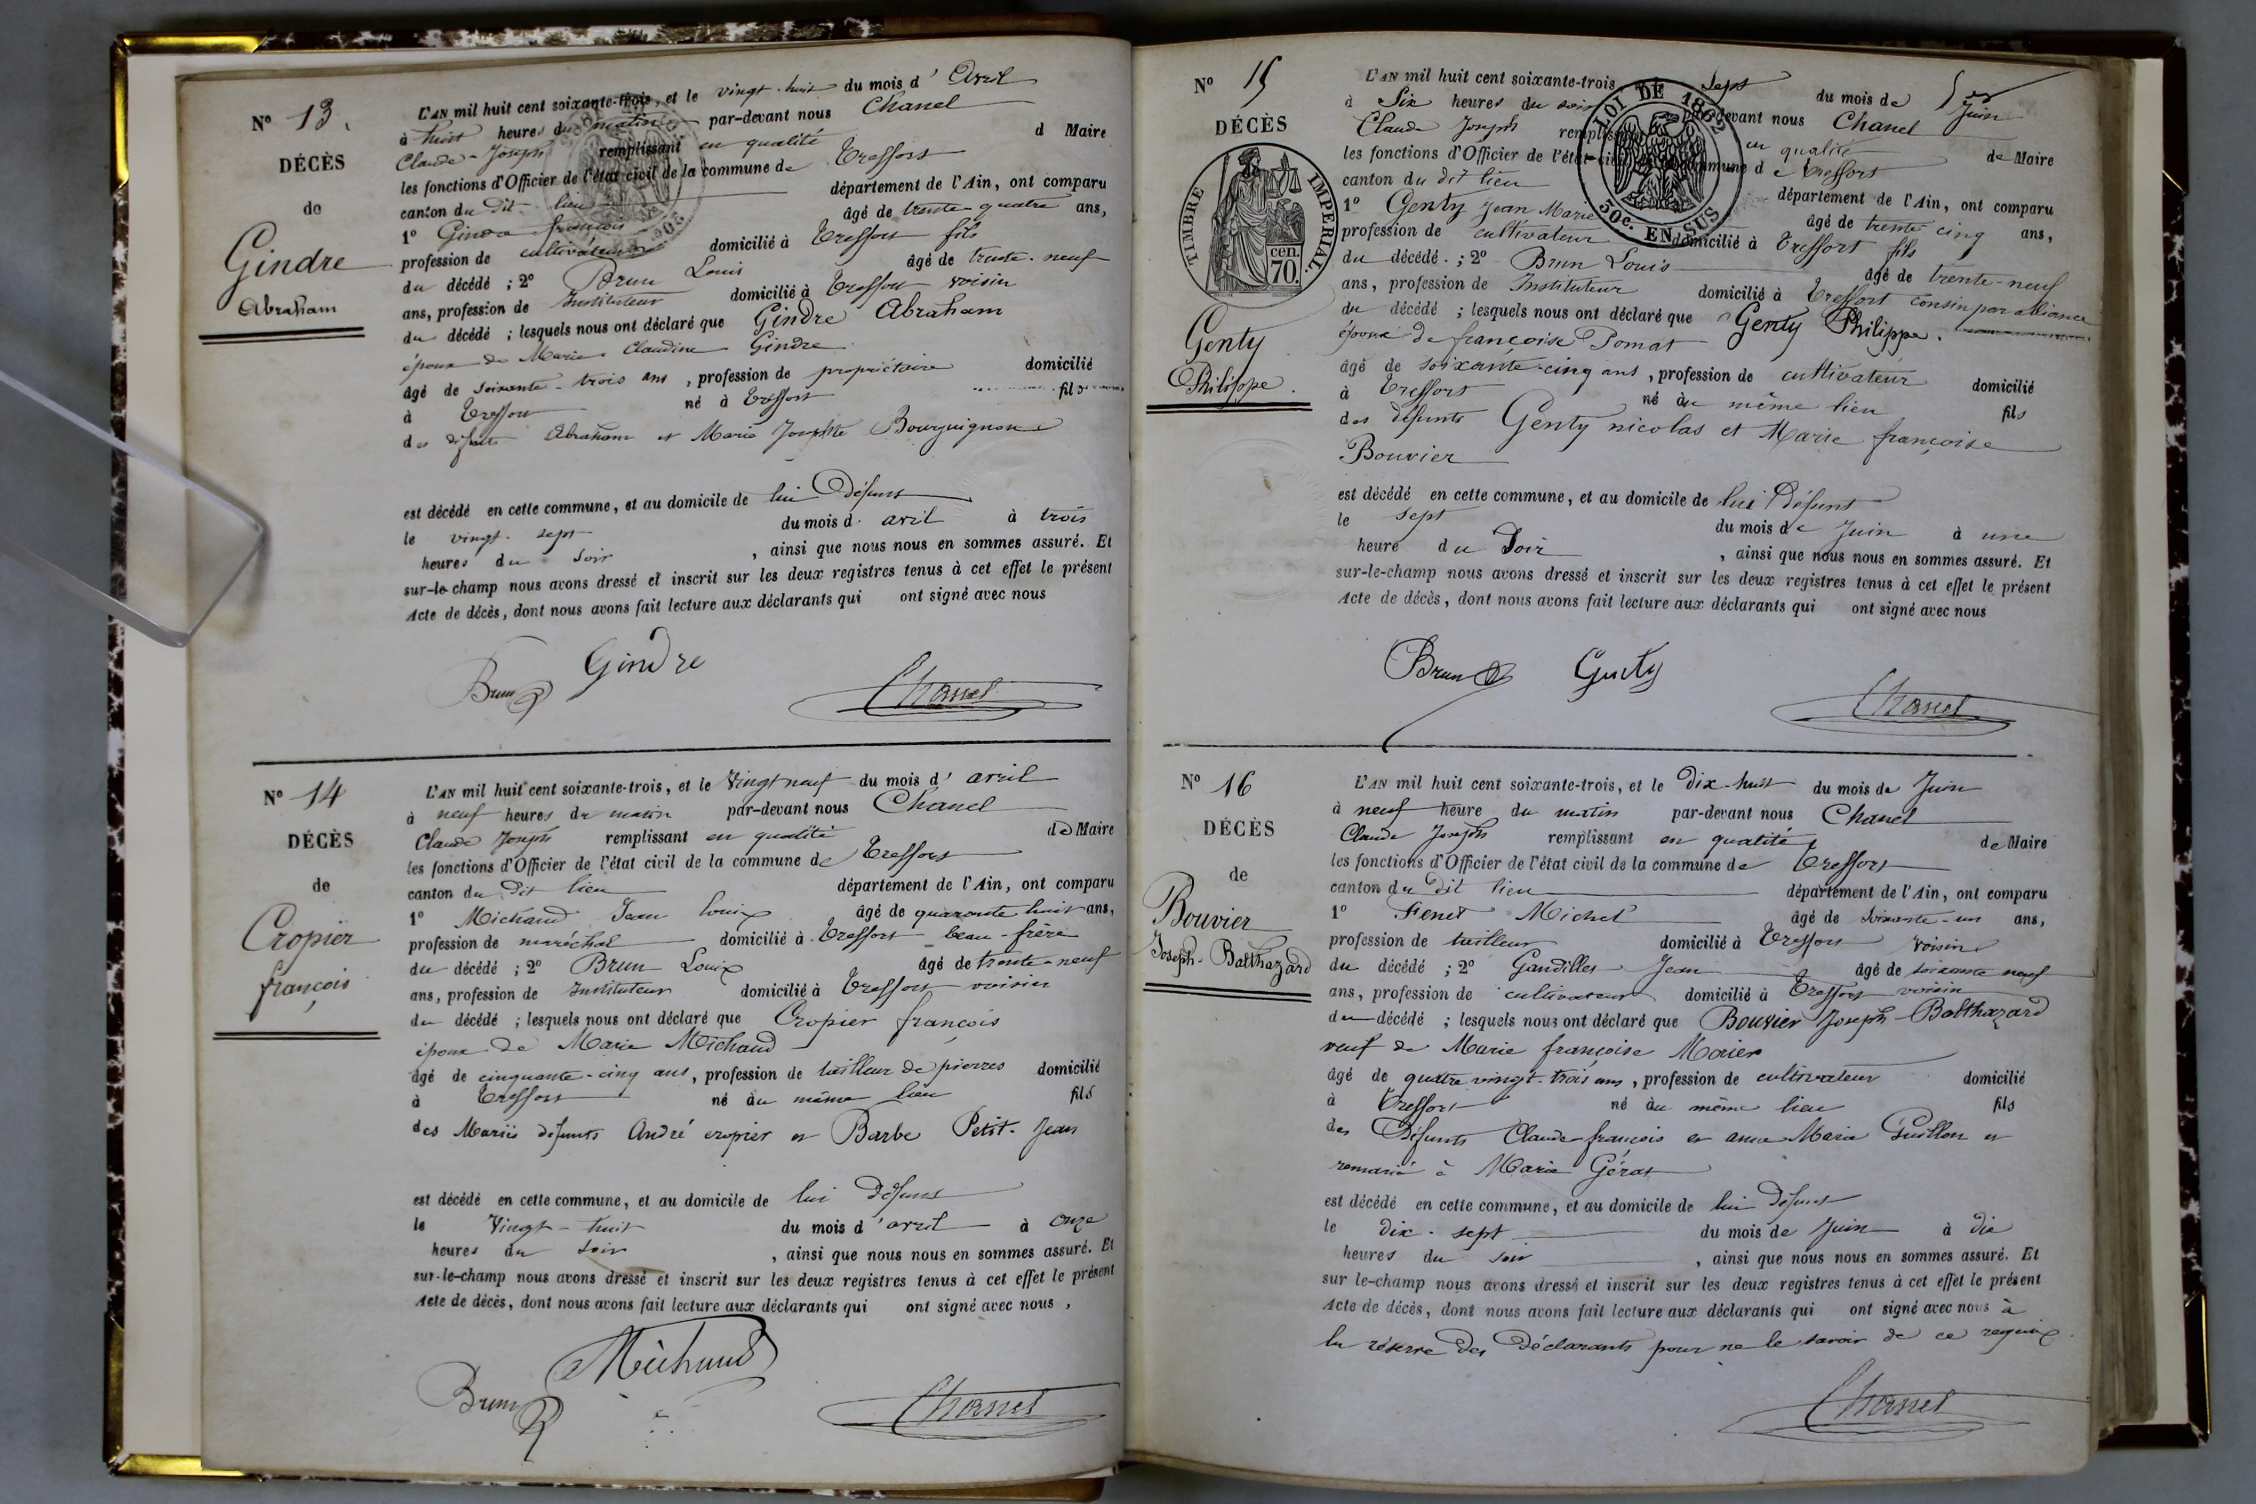 N° 13.
DÉCÈS
de
Gindre
Abraham
L'AN mil huit cent soixante-trois, et le vingt-huit du mois d'Avril
à huit heures du matin par-devant nous Chanel
Claude-Joseph remplissant en qualité d Maire
les fonctions d'Officier de l'état civil de la commune de Treffort
canton du dit lieu département de l'Ain, ont comparu
1° Gindre françois âgé de trente-quatre ans,
profession de cultivateur domicilié à Treffort fils
du décédé ; 2° Brun Louis âgé de trente-neuf
ans, profession de Instituteur domicilié à Treffort voisin
du décédé ; lesquels nous ont déclaré que Gindre Abraham
époux de Marie Claudine Gindre
âgé de soixante-trois ans, profession de propriétaire domicilié
à Treffort né à Treffort fils
des défunts Abraham et Marie Josephte Bourguignon
est décédé en cette commune, et au domicile de lui Défunt
le vingt-sept du mois d'avril à trois
heures du soir, ainsi que nous nous en sommes assuré. Et
sur-le-champ nous avons dressé et inscrit sur les deux registres tenus à cet effet le présent
Acte de décès, dont nous avons fait lecture aux déclarants qui ont signé avec nous
Gindre
Brun Chanel
N° 14
DÉCÈS
de
Cropier
françois
L'AN mil huit cent soixante-trois, et le Vingt neuf du mois d'avril
à neuf heures du matin par-devant nous Chanel
Claude Joseph remplissant en qualité de Maire
les fonctions d'Officier de l'état civil de la commune de Treffort
canton du Dit lieu département de l'Ain, ont comparu
1° Michaud Jean Louis âgé de quarante huit ans,
profession de maréchal domicilié à Treffort beau-frère
du décédé ; 2° Brun Louis âgé de trente-neuf
ans, profession de Instituteur domicilié à Treffort voisin
du décédé ; lesquels nous ont déclaré que Cropier françois
époux de Marie Michaud
âgé de cinquante-cinq ans, profession de tailleur de pierres domicilié
à Treffort né au même lieu fils
des Mariés défunts André cropier et Barbe Petit-Jean
est décédé en cette commune, et au domicile de lui Défunt
le Vingt-huit du mois d'avril à onze
heures du soir, ainsi que nous nous en sommes assuré. Et
sur-le-champ nous avons dressé et inscrit sur les deux registres tenus à cet effet le présent
Acte de décès, dont nous avons fait lecture aux déclarants qui ont signé avec nous,
Michaud
Brun Chanel
N° 15
DÉCÈS
TIMBRE IMPERIAL.
cen. 70.
Genty
Philippe.
LOI DE 1862
50c. EN SUS
L'AN mil huit cent soixante-trois sept du mois de Juin
à Six heures du soir par-devant nous Chanel
Claude Joseph remplissant en qualité de Maire
les fonctions d'Officier de l'état civil de la commune de Treffort
canton du dit lieu département de l'Ain, ont comparu
1° Genty Jean Marie âgé de trente cinq ans,
profession de cultivateur domicilié à Treffort fils
du décédé. ; 2° Brun Louis âgé de trente-neuf
ans, profession de Instituteur domicilié à Treffort cousin par alliance
du décédé ; lesquels nous ont déclaré que Genty Philippe.
époux de françoise Pomat
âgé de soixante-cinq ans, profession de cultivateur domicilié
à Treffort né au même lieu fils
des défunts Genty nicolas et Marie françoise
Bouvier
est décédé en cette commune, et au domicile de lui Défunt
le sept du mois de Juin à une
heure du Soir, ainsi que nous nous en sommes assuré. Et
sur-le-champ nous avons dressé et inscrit sur les deux registres tenus à cet effet le présent
Acte de décès, dont nous avons fait lecture aux déclarants qui ont signé avec nous
Brun Genty
Chanel
N° 16
DÉCÈS
de
Bouvier
Joseph-Balthazard
L'AN mil huit cent soixante-trois, et le Dix-huit du mois de Juin
à neuf heure du matin par-devant nous Chanel
Claude Joseph remplissant en qualité de Maire
les fonctions d'Officier de l'état civil de la commune de Treffort
canton du dit lieu département de l'Ain, ont comparu
1° Fenet Michel âgé de soixante-un ans,
profession de tailleur domicilié à Treffort voisin
du décédé ; 2° Gandilles Jean âgé de soixante neuf
ans, profession de cultivateur domicilié à Treffort voisin
du décédé ; lesquels nous ont déclaré que Bouvier Joseph-Balthazard
veuf de Marie françoise Morier
âgé de quatre vingt-trois ans, profession de cultivateur domicilié
à Treffort né au même lieu fils
des Défunts Claude-françois et anne Marie Guillon et
remarié à Marie Gérat
est décédé en cette commune, et au domicile de lui Défunt
le dix-sept du mois de Juin à dix
heures du soir, ainsi que nous nous en sommes assuré. Et
sur le-champ nous avons dressé et inscrit sur les deux registres tenus à cet effet le présent
Acte de décès, dont nous avons fait lecture aux déclarants qui ont signé avec nous à
la réserve des Déclarants pour ne le savoir de ce requis.
Chanel